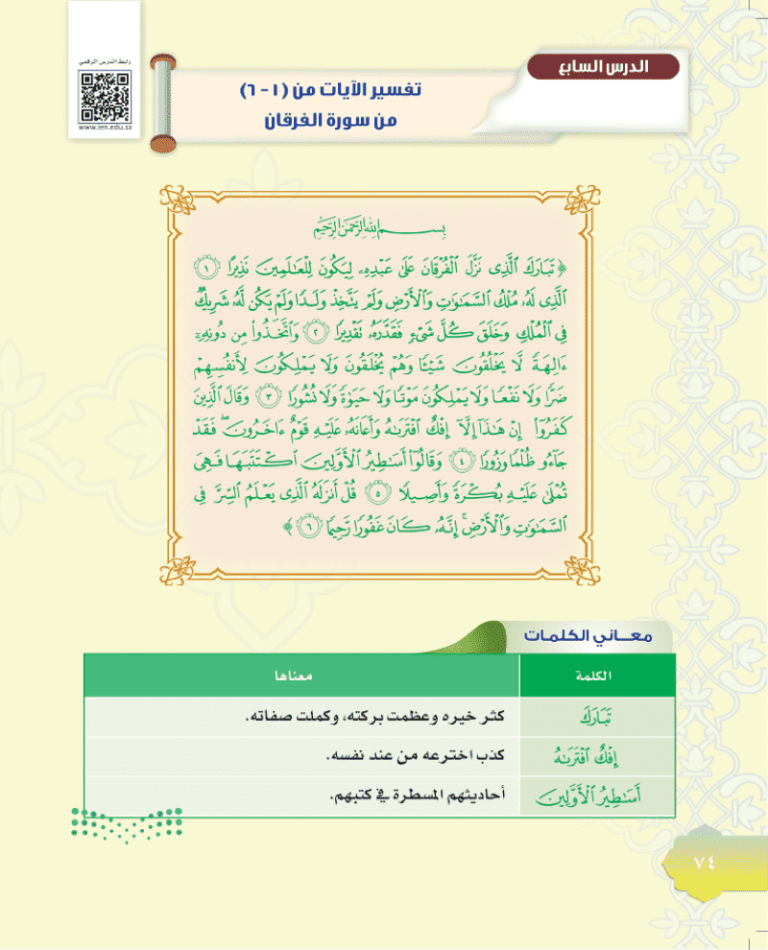 رابط الدرس الرقمي
www.ien.edu.sa
الدرس السابع
تفسير الآيات من (١ - ٦)
من سورة الفرقان
بِسْمِ اللَّهِ الرَّحْمَٰنِ الرَّحِيمِ
﴿ تَبَارَكَ ٱلَّذِى نَزَّلَ ٱلْفُرْقَانَ عَلَىٰ عَبْدِهِۦ لِيَكُونَ لِلْعَـٰلَمِينَ نَذِيرًا ١
ٱلَّذِى لَهُۥ مُلْكُ ٱلسَّمَـٰوَٰتِ وَٱلْأَرْضِ وَلَمْ يَتَّخِذْ وَلَدًا وَلَمْ يَكُن لَّهُۥ شَرِيكٌ
فِى ٱلْمُلْكِ وَخَلَقَ كُلَّ شَىْءٍ فَقَدَّرَهُۥ تَقْدِيرًا ٢ وَٱتَّخَذُوا۟ مِن دُونِهِۦٓ
ءَالِهَةً لَّا يَخْلُقُونَ شَيْـًٔا وَهُمْ يُخْلَقُونَ وَلَا يَمْلِكُونَ لِأَنفُسِهِمْ
ضَرًّا وَلَا نَفْعًا وَلَا يَمْلِكُونَ مَوْتًا وَلَا حَيَوٰةً وَلَا نُشُورًا ٣ وَقَالَ ٱلَّذِينَ
كَفَرُوٓا۟ إِنْ هَـٰذَآ إِلَّآ إِفْكٌ ٱفْتَرَىٰهُ وَأَعَانَهُۥ عَلَيْهِ قَوْمٌ ءَاخَرُونَ ۖ فَقَدْ
جَآءُو ظُلْمًا وَزُورًا ٤ وَقَالُوٓا۟ أَسَـٰطِيرُ ٱلْأَوَّلِينَ ٱكْتَتَبَهَا فَهِىَ
تُمْلَىٰ عَلَيْهِ بُكْرَةً وَأَصِيلًا ٥ قُلْ أَنزَلَهُ ٱلَّذِى يَعْلَمُ ٱلسِّرَّ فِى
ٱلسَّمَـٰوَٰتِ وَٱلْأَرْضِ ۚ إِنَّهُۥ كَانَ غَفُورًا رَّحِيمًا ٦ ﴾
معـــاني الكلمـات
الكلمة معناها
تَبَارَكَ كثر خيره وعظمت بركته، وكملت صفاته.
إِفْكٌ ٱفْتَرَىٰهُ كذب اخترعه من عند نفسه.
أَسَـٰطِيرُ ٱلْأَوَّلِينَ أحاديثهم المسطرة في كتبهم.
٧٤